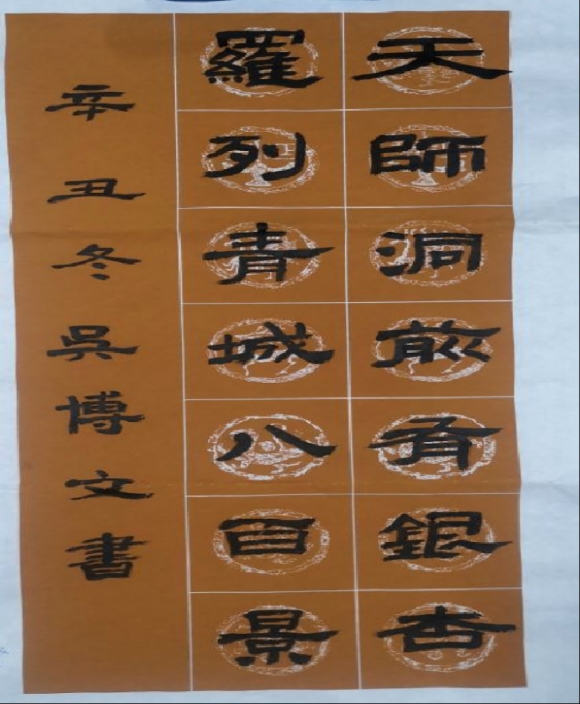 天師洞前有銀杏
羅列青城八百景
辛丑冬吳博文書